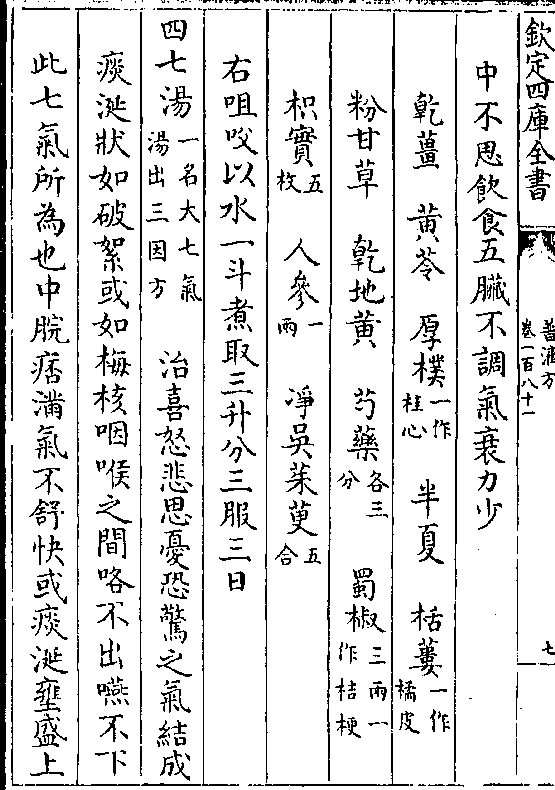 欽定四庫全書
普濟方
卷一百八十一
七
中不思飲食五臟不調氣衰力少
乾薑 黃芩 厚樸一作桂心 半夏 栝蔞一作橘皮
粉甘草 乾地黃 芍藥各三分 蜀椒三兩一作桔梗
枳實五枚 人參一兩 淨吳茱萸五合
右咀咬以水一斗煮取三升分三服三日
四七湯一名大七氣湯出三因方 治喜怒悲思憂恐驚之氣結成
痰涎狀如破絮或如梅核咽喉之間咯不出嚥不下
此七氣所為也中脘痞滿氣不舒快或痰涎壅盛上